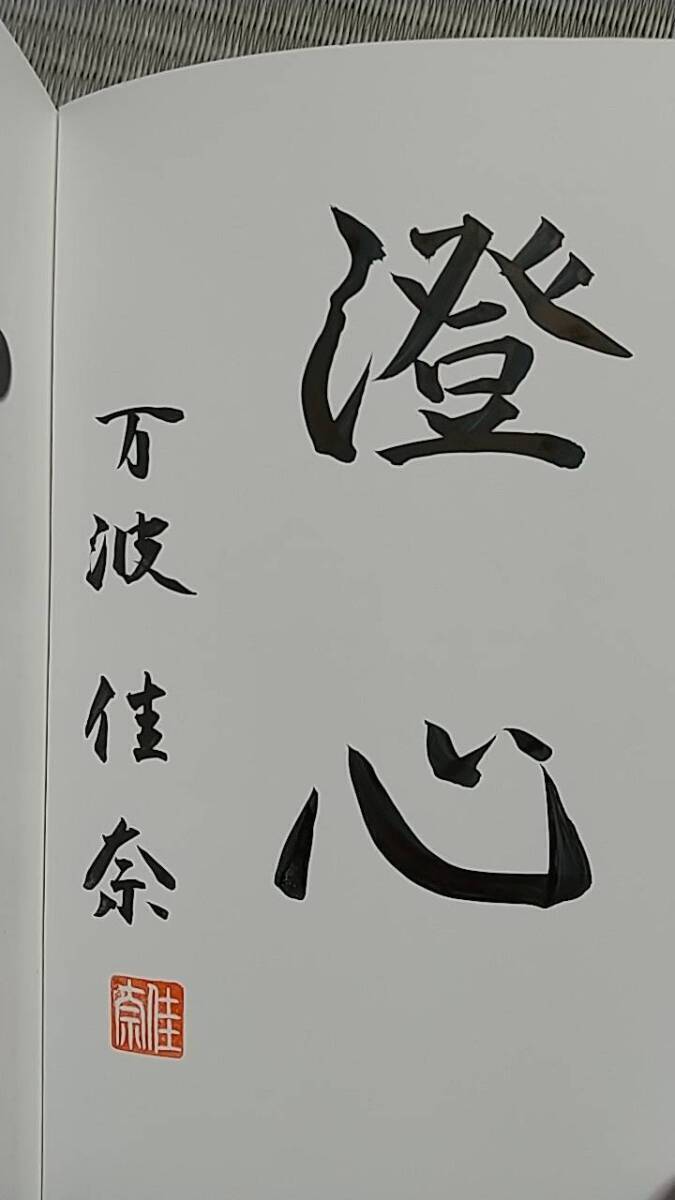 澄心
万波佳奈
佳奈